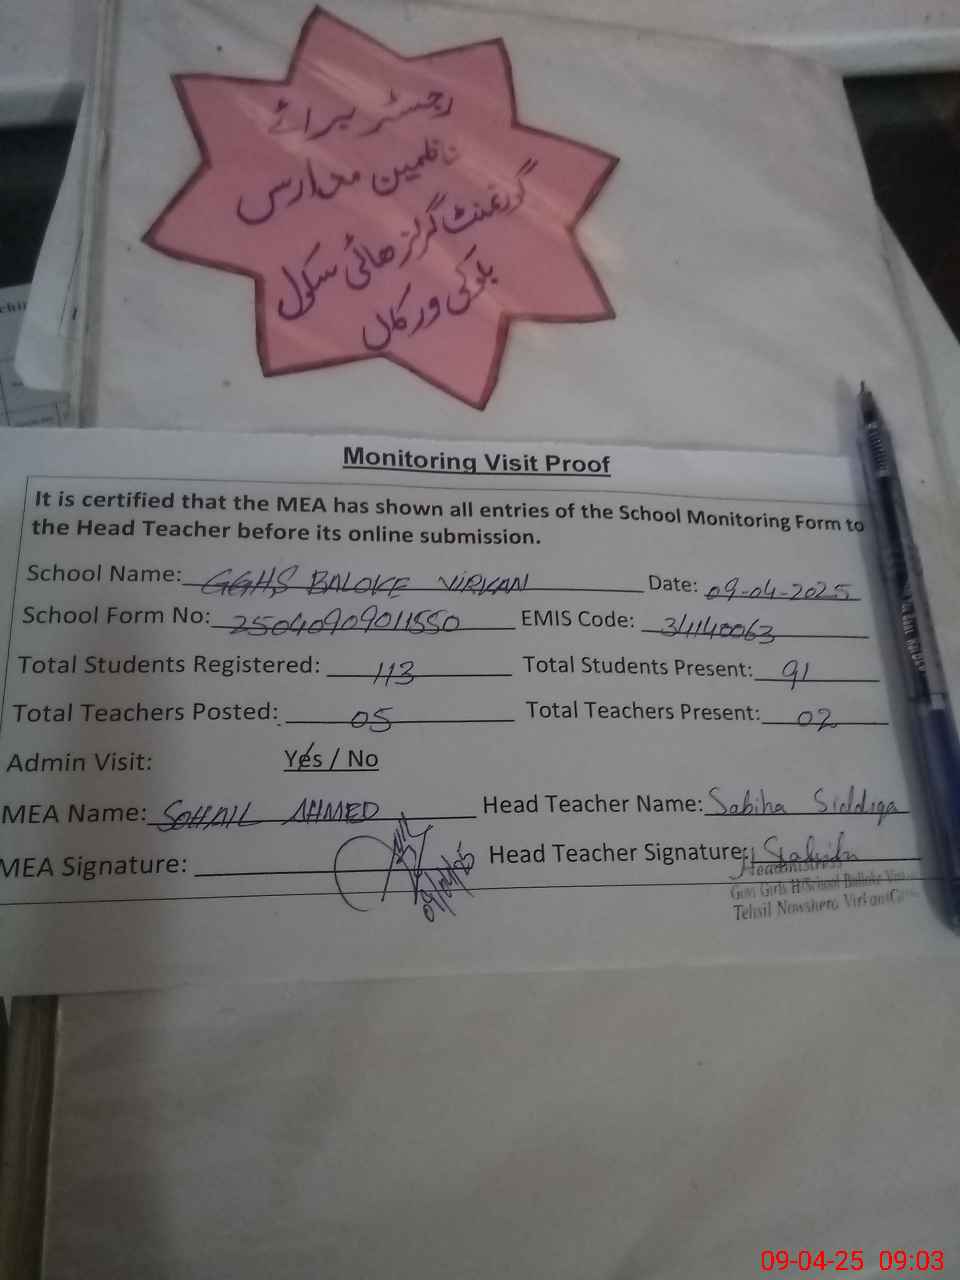 رجسٹر برائے
ناظمین مدارس
گورنمنٹ گرلز ھائی سکول
بلوکی ورکاں
Monitoring Visit Proof
It is certified that the MEA has shown all entries of the School Monitoring Form to
the Head Teacher before its online submission.
School Name: GGHS BALOKE VIRKAN Date: 09-04-2025
School Form No: 25040909011550 EMIS Code: 34140063
Total Students Registered: 113 Total Students Present: 91
Total Teachers Posted: 05 Total Teachers Present: 02
Admin Visit: Yes / No
MEA Name: SOHAIL AHMED Head Teacher Name: Sabiha Siddiqa
MEA Signature: 09/04/25 Head Teacher Signature:
Headmistress
Govt Girls H/School Balloke
Tehsil Nowshera Virkan
09-04-25 09:03